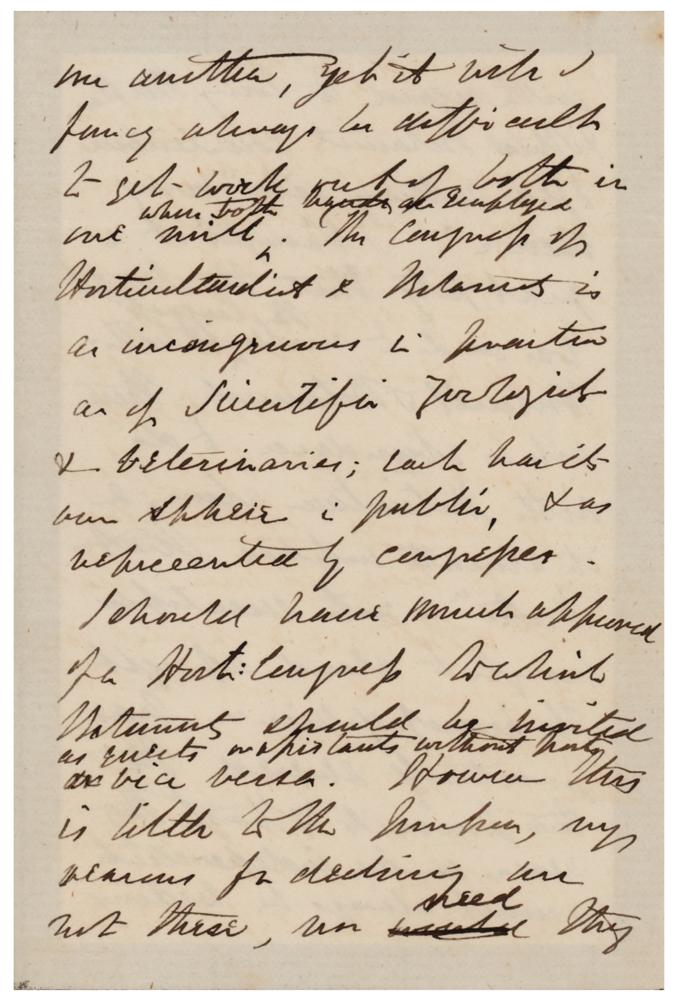 one another, yet it will I
fancy always be difficult
to get work out of both in
when both hands are employed
one mill. The Congress of
Horticulturalist & Botanists is
as incongruous in practice
as of Scientific Zoologist
& veterinaries; each has its
own sphere in public, & as
represented by congresses.
I should have much approved
of a Hort: Congress to which
Botanists should be invited
as guests or assistants without
or vice versa. However this
is little to the purpose, my
reasons for declining are
not these, nor need they